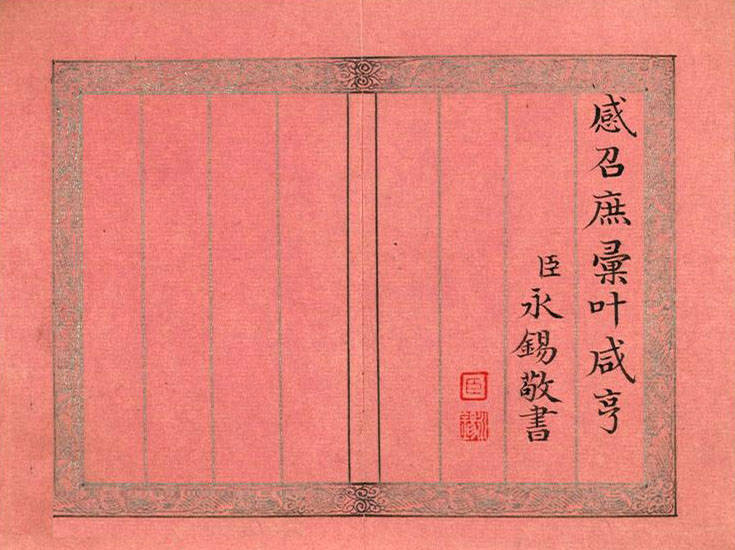 感召庶彙叶咸亨
臣永錫敬書
臣
永錫